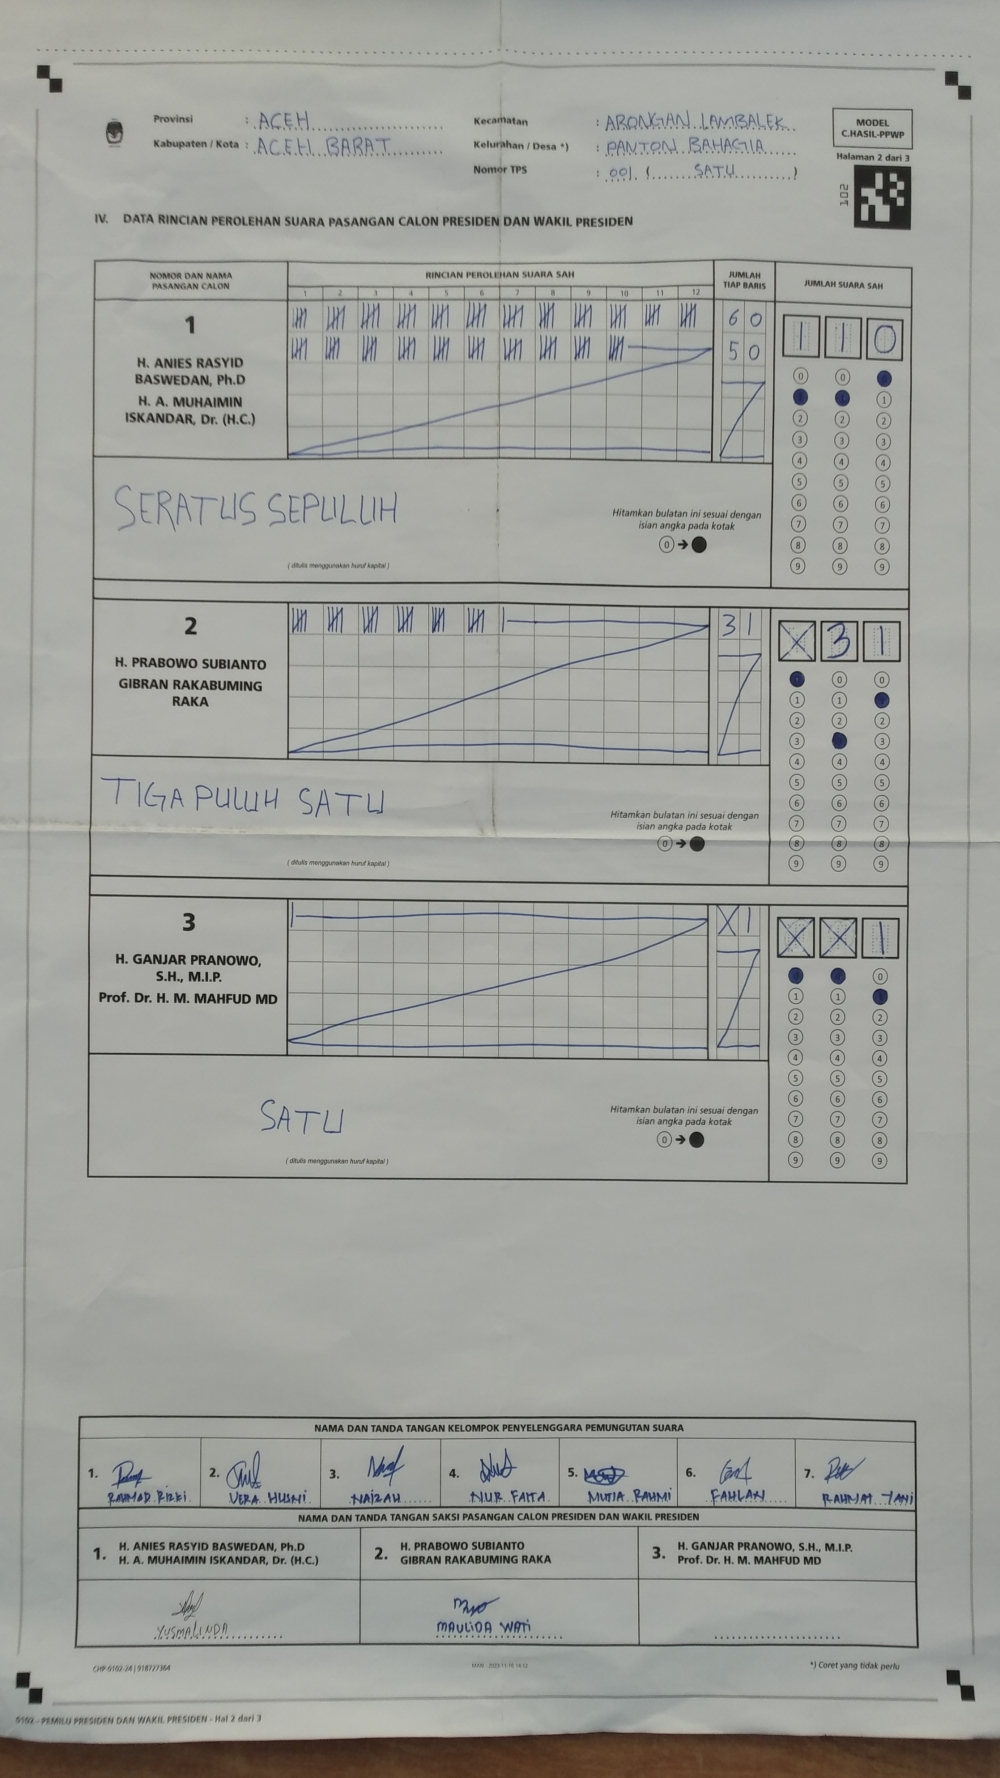 Provinsi : ACEH
Kabupaten / Kota : ACEH BARAT
Kecamatan : ARONGAN LAMBALEK
Kelurahan / Desa *) : PANTON BAHAGIA
Nomor TPS : 001 ( SATU )
MODEL
C.HASIL-PPWP
Halaman 2 dari 3
102
IV. DATA RINCIAN PEROLEHAN SUARA PASANGAN CALON PRESIDEN DAN WAKIL PRESIDEN
NOMOR DAN NAMA
PASANGAN CALON
RINCIAN PEROLEHAN SUARA SAH
1 2 3 4 5 6 7 8 9 10 11 12
JUMLAH
TIAP BARIS
JUMLAH SUARA SAH
1
H. ANIES RASYID
BASWEDAN, Ph.D
H. A. MUHAIMIN
ISKANDAR, Dr. (H.C.)
60
50
1 1 0
0 0
1
2 2 2
3 3 3
4 4 4
5 5 5
6 6 6
7 7 7
8 8 8
9 9 9
SERATUS SEPULUH
Hitamkan bulatan ini sesuai dengan
isian angka pada kotak
0
( ditulis menggunakan huruf kapital )
2
H. PRABOWO SUBIANTO
GIBRAN RAKABUMING
RAKA
31
X 3 1
0 0
1 1
2 2 2
3 3
4 4 4
5 5 5
6 6 6
7 7 7
8 8 8
9 9 9
TIGA PULUH SATU
Hitamkan bulatan ini sesuai dengan
isian angka pada kotak
0
( ditulis menggunakan huruf kapital )
3
H. GANJAR PRANOWO,
S.H., M.I.P.
Prof. Dr. H. M. MAHFUD MD
X1
X X 1
0
1 1
2 2 2
3 3 3
4 4 4
5 5 5
6 6 6
7 7 7
8 8 8
9 9 9
SATU
Hitamkan bulatan ini sesuai dengan
isian angka pada kotak
0
( ditulis menggunakan huruf kapital )
NAMA DAN TANDA TANGAN KELOMPOK PENYELENGGARA PEMUNGUTAN SUARA
1. 2. 3. 4. 5. 6. 7.
RAHMAD RIZKI VERA HUSNI NAIZAH NUR FAITA MUTIA RAHMI FAHLAN RAHMAT YANI
NAMA DAN TANDA TANGAN SAKSI PASANGAN CALON PRESIDEN DAN WAKIL PRESIDEN
1. H. ANIES RASYID BASWEDAN, Ph.D
H. A. MUHAIMIN ISKANDAR, Dr. (H.C.)
2. H. PRABOWO SUBIANTO
GIBRAN RAKABUMING RAKA
3. H. GANJAR PRANOWO, S.H., M.I.P.
Prof. Dr. H. M. MAHFUD MD
YUSMALINDA
MAULIDA WATI
CHP-0102-24 | 918727364
*) Coret yang tidak perlu
0102 - PEMILU PRESIDEN DAN WAKIL PRESIDEN - Hal 2 dari 3